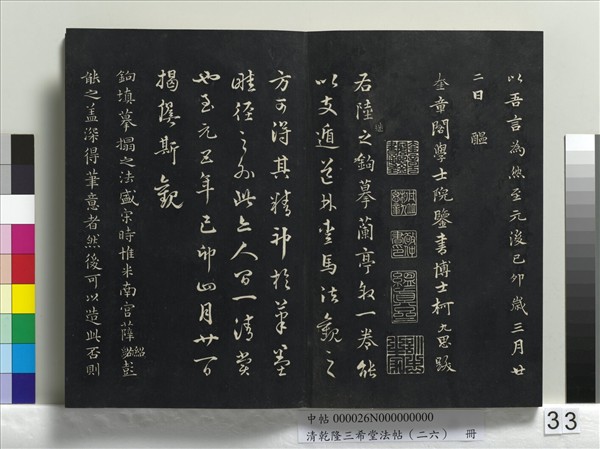 以吾言為然至元後己卯歲三月廿
二日
奎章閣學士院鑒書博士柯九思跋
右陸之鉤摹蘭亭敘一卷能
以支遁道林畫馬法觀之
方可得其精神於筆墨
畦徑之外此上人間一清賞
也至元五年己卯四月廿一日
揭傒斯觀
鉤填摹搨之法盛宋時惟米南宮薛紹彭
能之蓋深得筆意者然後可以造此否則
中帖 000026N000000000
清乾隆三希堂法帖(二六) 冊
33